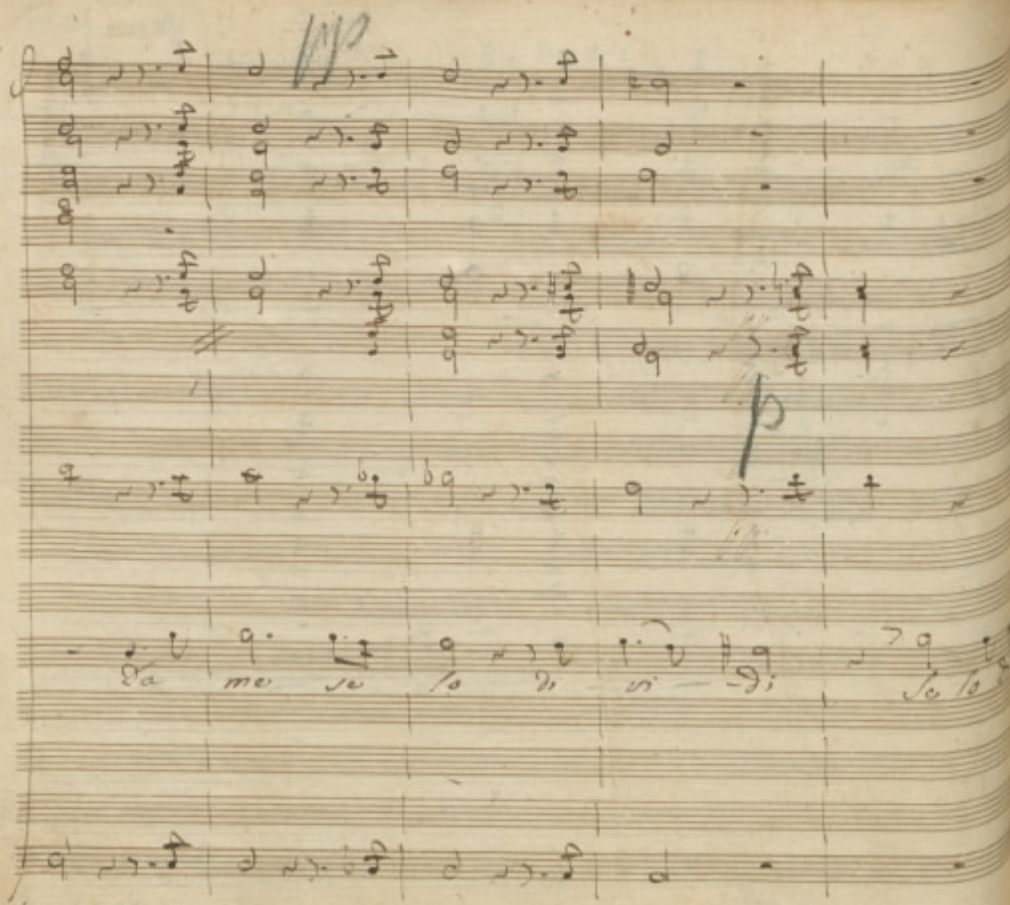 pp
p
Da me se lo di - vi - - di se lo